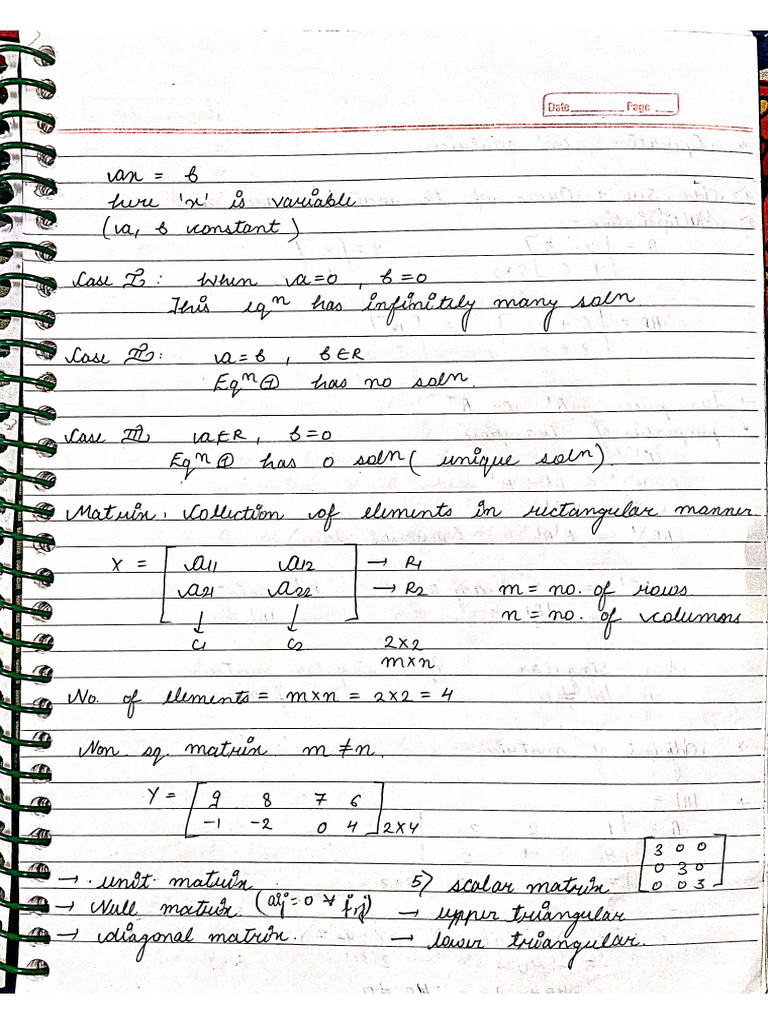 Date Page
ax = b
here 'x' is variable
(a, b constant)
Case I: When a=0 , b=0
This eqⁿ has infinitely many soln
Case II: a=b , b∈R
Eqⁿ ① has no soln.
Case III a∈R, b=0
Eqⁿ ① has 0 soln ( unique soln).
Matrix: Collection of elements in rectangular manner
X = [ a11 a12 ] → R1
a21 a22 → R2 m = no. of rows
↓ ↓ n = no. of columns
C1 C2 2×2
m×n
No. of elements = m×n = 2×2 = 4
Non sq. matrix m ≠ n.
Y = [ 9 8 7 6
-1 -2 0 4 ] 2×4
→ unit matrix 5) scalar matrix [ 3 0 0
0 3 0
0 0 3 ]
→ Null matrix (aij = 0 ∀ i,j) → upper triangular
→ diagonal matrix. → lower triangular.